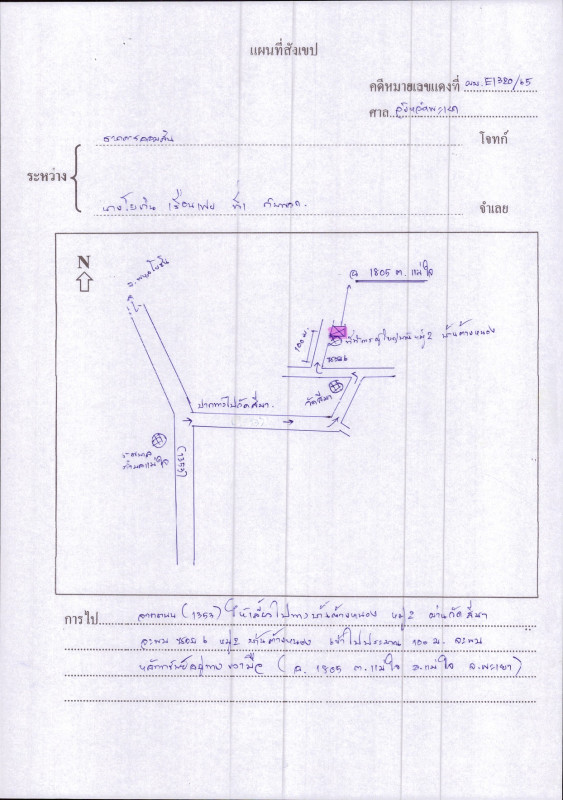 แผนที่สังเขป
คดีหมายเลขแดงที่ ผบ.E1380/65
ศาล จังหวัดพะเยา
ธนาคารออมสิน โจทก์
ระหว่าง
ที่1 กับพวก. จำเลย
N
ฉ. 1805 ต. แม่ใจ
100 ม.
ที่ทำการผู้ใหญ่บ้าน หมู่ 2 บ้านต้างหนอง
ซอย 6
วัดสีมา
ปากทางไปวัดสีมา.
(1353)
การไป จากถนน (1353) ให้เลี้ยวไปทางบ้านต้างหนอง หมู่ 2 ผ่านวัดสีมา
จะพบ ซอย 6 หมู่ 2 บ้านต้างหนอง เข้าไปประมาณ 100 ม. จะพบ
หลักทรัพย์อยู่ทางขวามือ ( ฉ. 1805 ต. แม่ใจ อ. แม่ใจ จ. พะเยา )